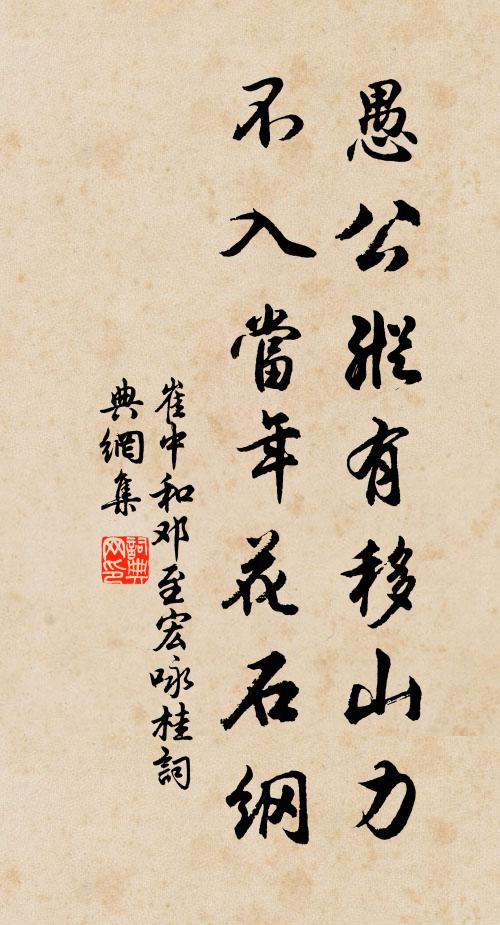 愚公縱有移山力
不入當年花石纲
崔中和邓至宏咏桂詞
典網集
詞典
网印